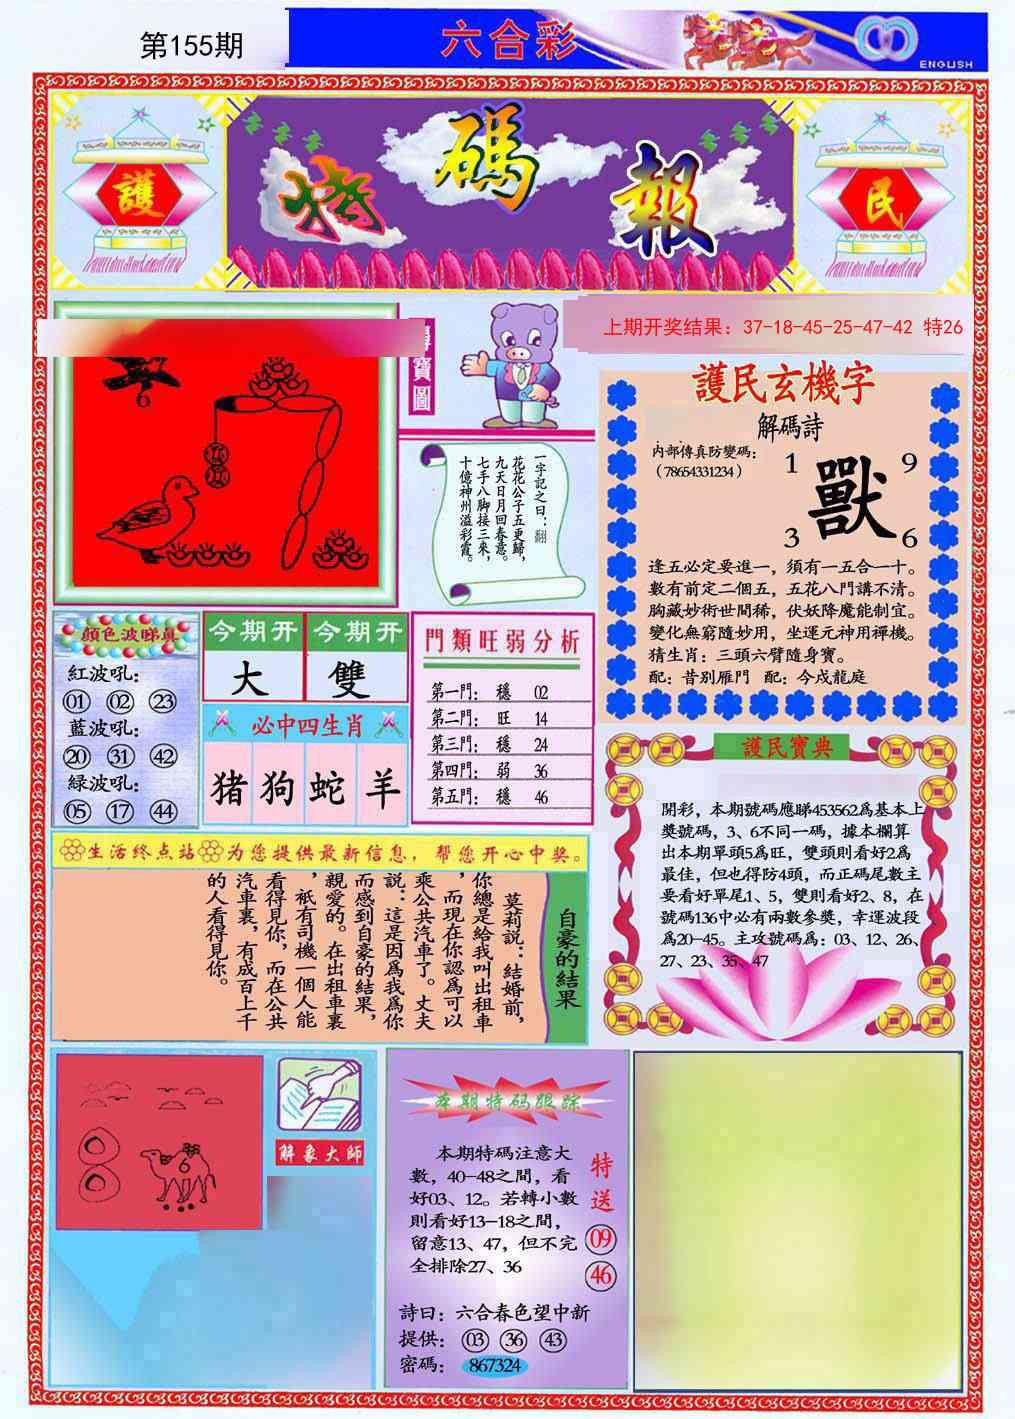 第155期
六合彩
ENGLISH
護
特碼報
民
6
尋寶圖
上期开奖结果：37-18-45-25-47-42 特26
一字記之曰：翻
花花公子五更歸，
九天日月回春意。
七手八脚接三來，
十億神州溢彩霞。
護民玄機字
解碼詩
内部傳真防變碼：
（78654331234）
1 9
獸
3 6
逢五必定要進一，須有一五合一十。
數有前定二個五，五花八門講不清。
胸藏妙術世間稀，伏妖降魔能制宜。
變化無窮隨妙用，坐運元神用禪機。
猜生肖：三頭六臂隨身寶。
配：昔别雁門 配：今戍龍庭
顔色波睇真
紅波吼：
01 02 23
藍波吼：
20 31 42
綠波吼：
05 17 44
今期开 今期开
大 雙
必中四生肖
猪 狗 蛇 羊
門類旺弱分析
第一門： 穩 02
第二門： 旺 14
第三門： 穩 24
第四門： 弱 36
第五門： 穩 46
護民寶典
開彩，本期號碼應睇453562爲基本上
獎號碼，3、6不同一碼，據本欄算
出本期單頭5爲旺，雙頭則看好2爲
最佳，但也得防4頭，而正碼尾數主
要看好單尾1、5，雙則看好2、8，在
號碼136中必有兩數參獎，幸運波段
爲20-45。主攻號碼爲：03、12、26、
27、23、35、47
生活终点站 为您提供最新信息，帮您开心中奖。
自豪的結果
莫莉説：結婚前，
你總是給我叫出租車
，而現在你認爲可以
乘公共汽車了。丈夫
説：這是因爲我爲你
而感到自豪的結果，
親愛的。在出租車裏
，衹有司機一個人能
看得見你，而在公共
汽車裏，有成百上千
的人看得見你。
6
解象大師
本期特码跟踪
本期特碼注意大
數，40-48之間，看
好03、12。若轉小數
則看好13-18之間，
留意13、47，但不完
全排除27、36
特送
09
46
詩曰：六合春色望中新
提供： 03 36 43
密碼： 867324